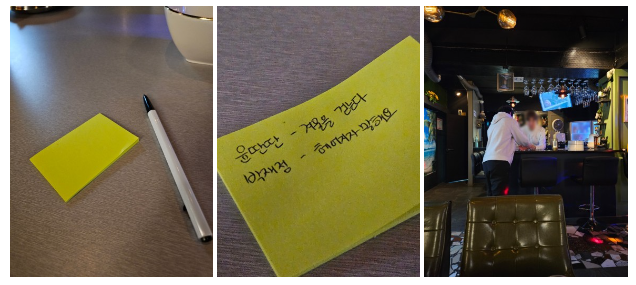 윤딴딴 - 겨울을
박재정 - 헤어지자 말해요